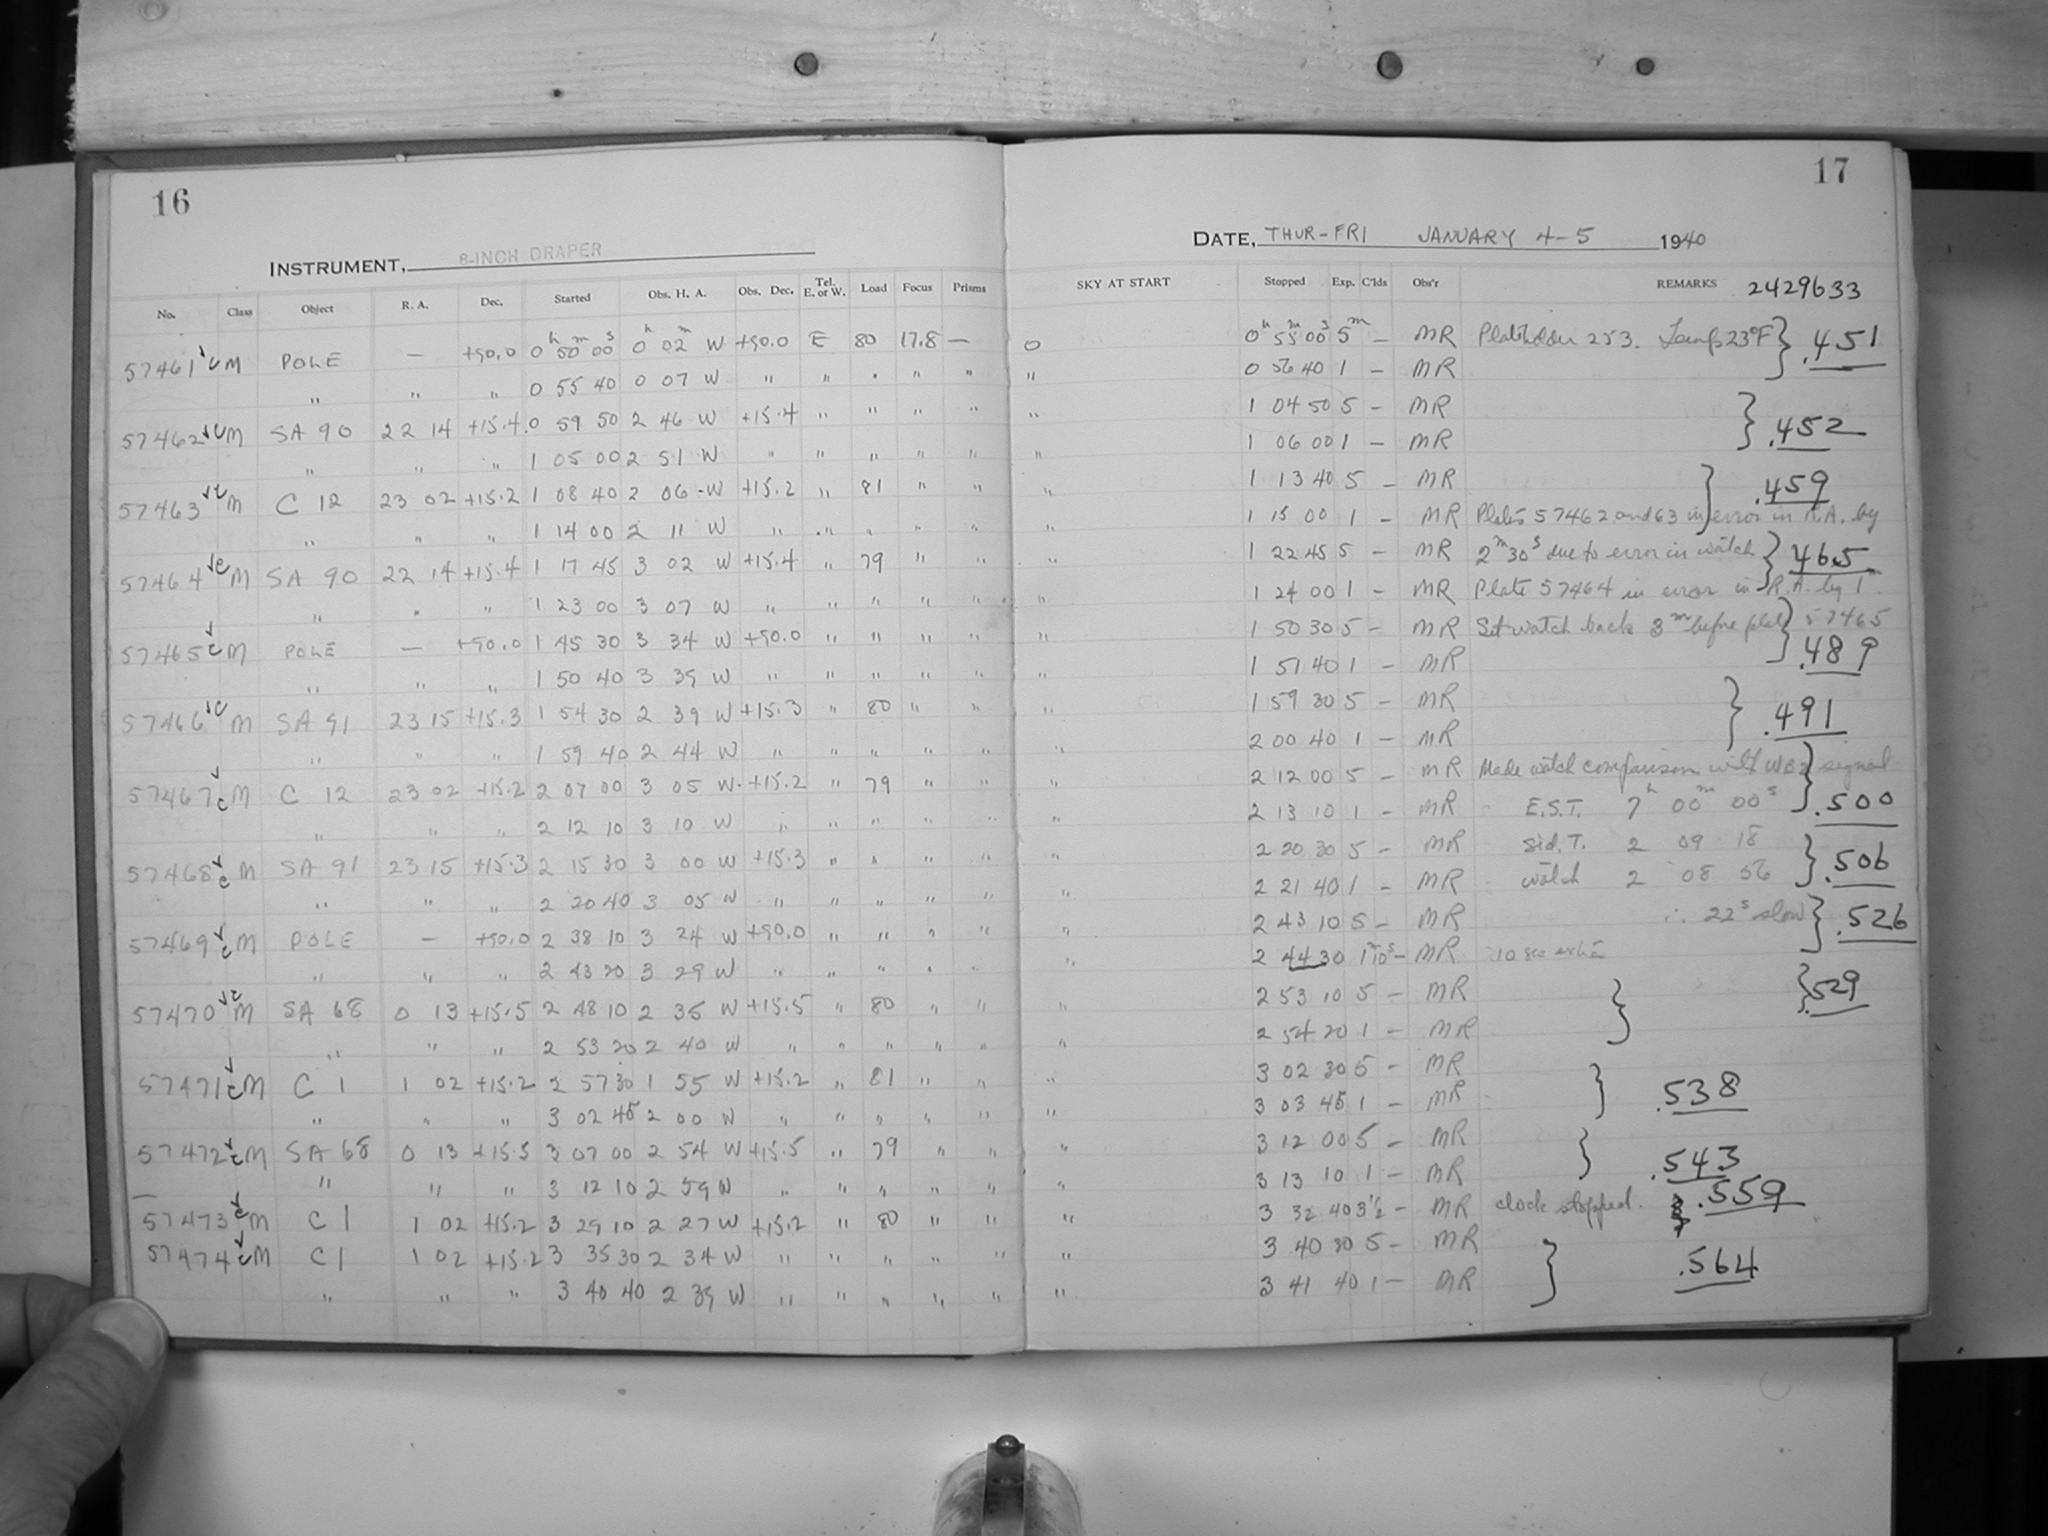 16
INSTRUMENT, 8-INCH DRAPER
No. Class Object R. A. Dec. Started Obs. H. A. Obs. Dec. Tel. E. or W. Load Focus Prisms
57461 ✓c M POLE — +90.0 0h 50m 00s 0h 02m W +90.0 E 80 17.8 —
" " " 0 55 40 0 07 W " " " " "
57462 ✓c M SA 90 22 14 +15.4 0 59 50 2 46 W +15.4 " " " "
" " " 1 05 00 2 51 W " " " " "
57463 ✓c M C 12 23 02 +15.2 1 08 40 2 06 W +15.2 " 81 " "
" " " 1 14 00 2 11 W " " " " "
57464 ✓c M SA 90 22 14 +15.4 1 17 45 3 02 W +15.4 " 79 " "
" " " 1 23 00 3 07 W " " " " "
57465 ✓c M POLE — +90.0 1 45 30 3 34 W +90.0 " " " "
" " " 1 50 40 3 39 W " " " " "
57466 ✓c M SA 91 23 15 +15.3 1 54 30 2 39 W +15.3 " 80 " "
" " " 1 59 40 2 44 W " " " " "
57467 ✓c M C 12 23 02 +15.2 2 07 00 3 05 W +15.2 " 79 " "
" " " 2 12 10 3 10 W " " " " "
57468 ✓c M SA 91 23 15 +15.3 2 15 30 3 00 W +15.3 " " " "
" " " 2 20 40 3 05 W " " " " "
57469 ✓c M POLE — +90.0 2 38 10 3 24 W +90.0 " " " "
" " " 2 43 20 3 29 W " " " " "
57470 ✓c M SA 68 0 13 +15.5 2 48 10 2 35 W +15.5 " 80 " "
" " " 2 53 20 2 40 W " " " " "
57471 ✓c M C 1 1 02 +15.2 2 57 30 1 55 W +15.2 " 81 " "
" " " 3 02 45 2 00 W " " " " "
57472 ✓c M SA 68 0 13 +15.5 3 07 00 2 54 W +15.5 " 79 " "
" " " 3 12 10 2 59 W " " " " "
57473 ✓c M C 1 1 02 +15.2 3 29 10 2 27 W +15.2 " 80 " "
57474 ✓c M C 1 1 02 +15.2 3 35 30 2 34 W " " " " "
" " " 3 40 40 2 39 W " " " " "
17
DATE, THUR-FRI JANUARY 4-5 1940
SKY AT START Stopped Exp. C'lds Obs'r REMARKS 2429633
0 0h 55m 00s 5m — MR Plateholder 253. Temp 23°F } .451
" 0 56 40 1 — MR
" 1 04 50 5 — MR
" 1 06 00 1 — MR } .452
" 1 13 40 5 — MR } .459
" 1 15 00 1 — MR Plates 57462 and 63 in error in R.A. by
" 1 22 45 5 — MR 2m30s due to error in watch } .465
" 1 24 00 1 — MR Plate 57464 in error in R.A. by 1m
" 1 50 30 5 — MR Set watch back 3m before plate 57465
" 1 51 40 1 — MR } .489
" 1 59 30 5 — MR
2 00 40 1 — MR } .491
" 2 12 00 5 — MR Made watch comparison with signal
" 2 13 10 1 — MR E.S.T. 7h 00m 00s } .500
" 2 20 30 5 — MR Sid. T. 2 09 18
" 2 21 40 1 — MR watch 2 08 56 } .506
" 2 43 10 5 — MR ∴ 22s slow } .526
" 2 44 30 1m10s — MR 10 sec extra
" 2 53 10 5 — MR } .529
" 2 54 20 1 — MR
" 3 02 30 5 — MR
" 3 03 45 1 — MR } .538
" 3 12 00 5 — MR
" 3 13 10 1 — MR } .543
" 3 32 40 3½ — MR clock stopped. .559
" 3 40 30 5 — MR
" 3 41 40 1 — MR } .564